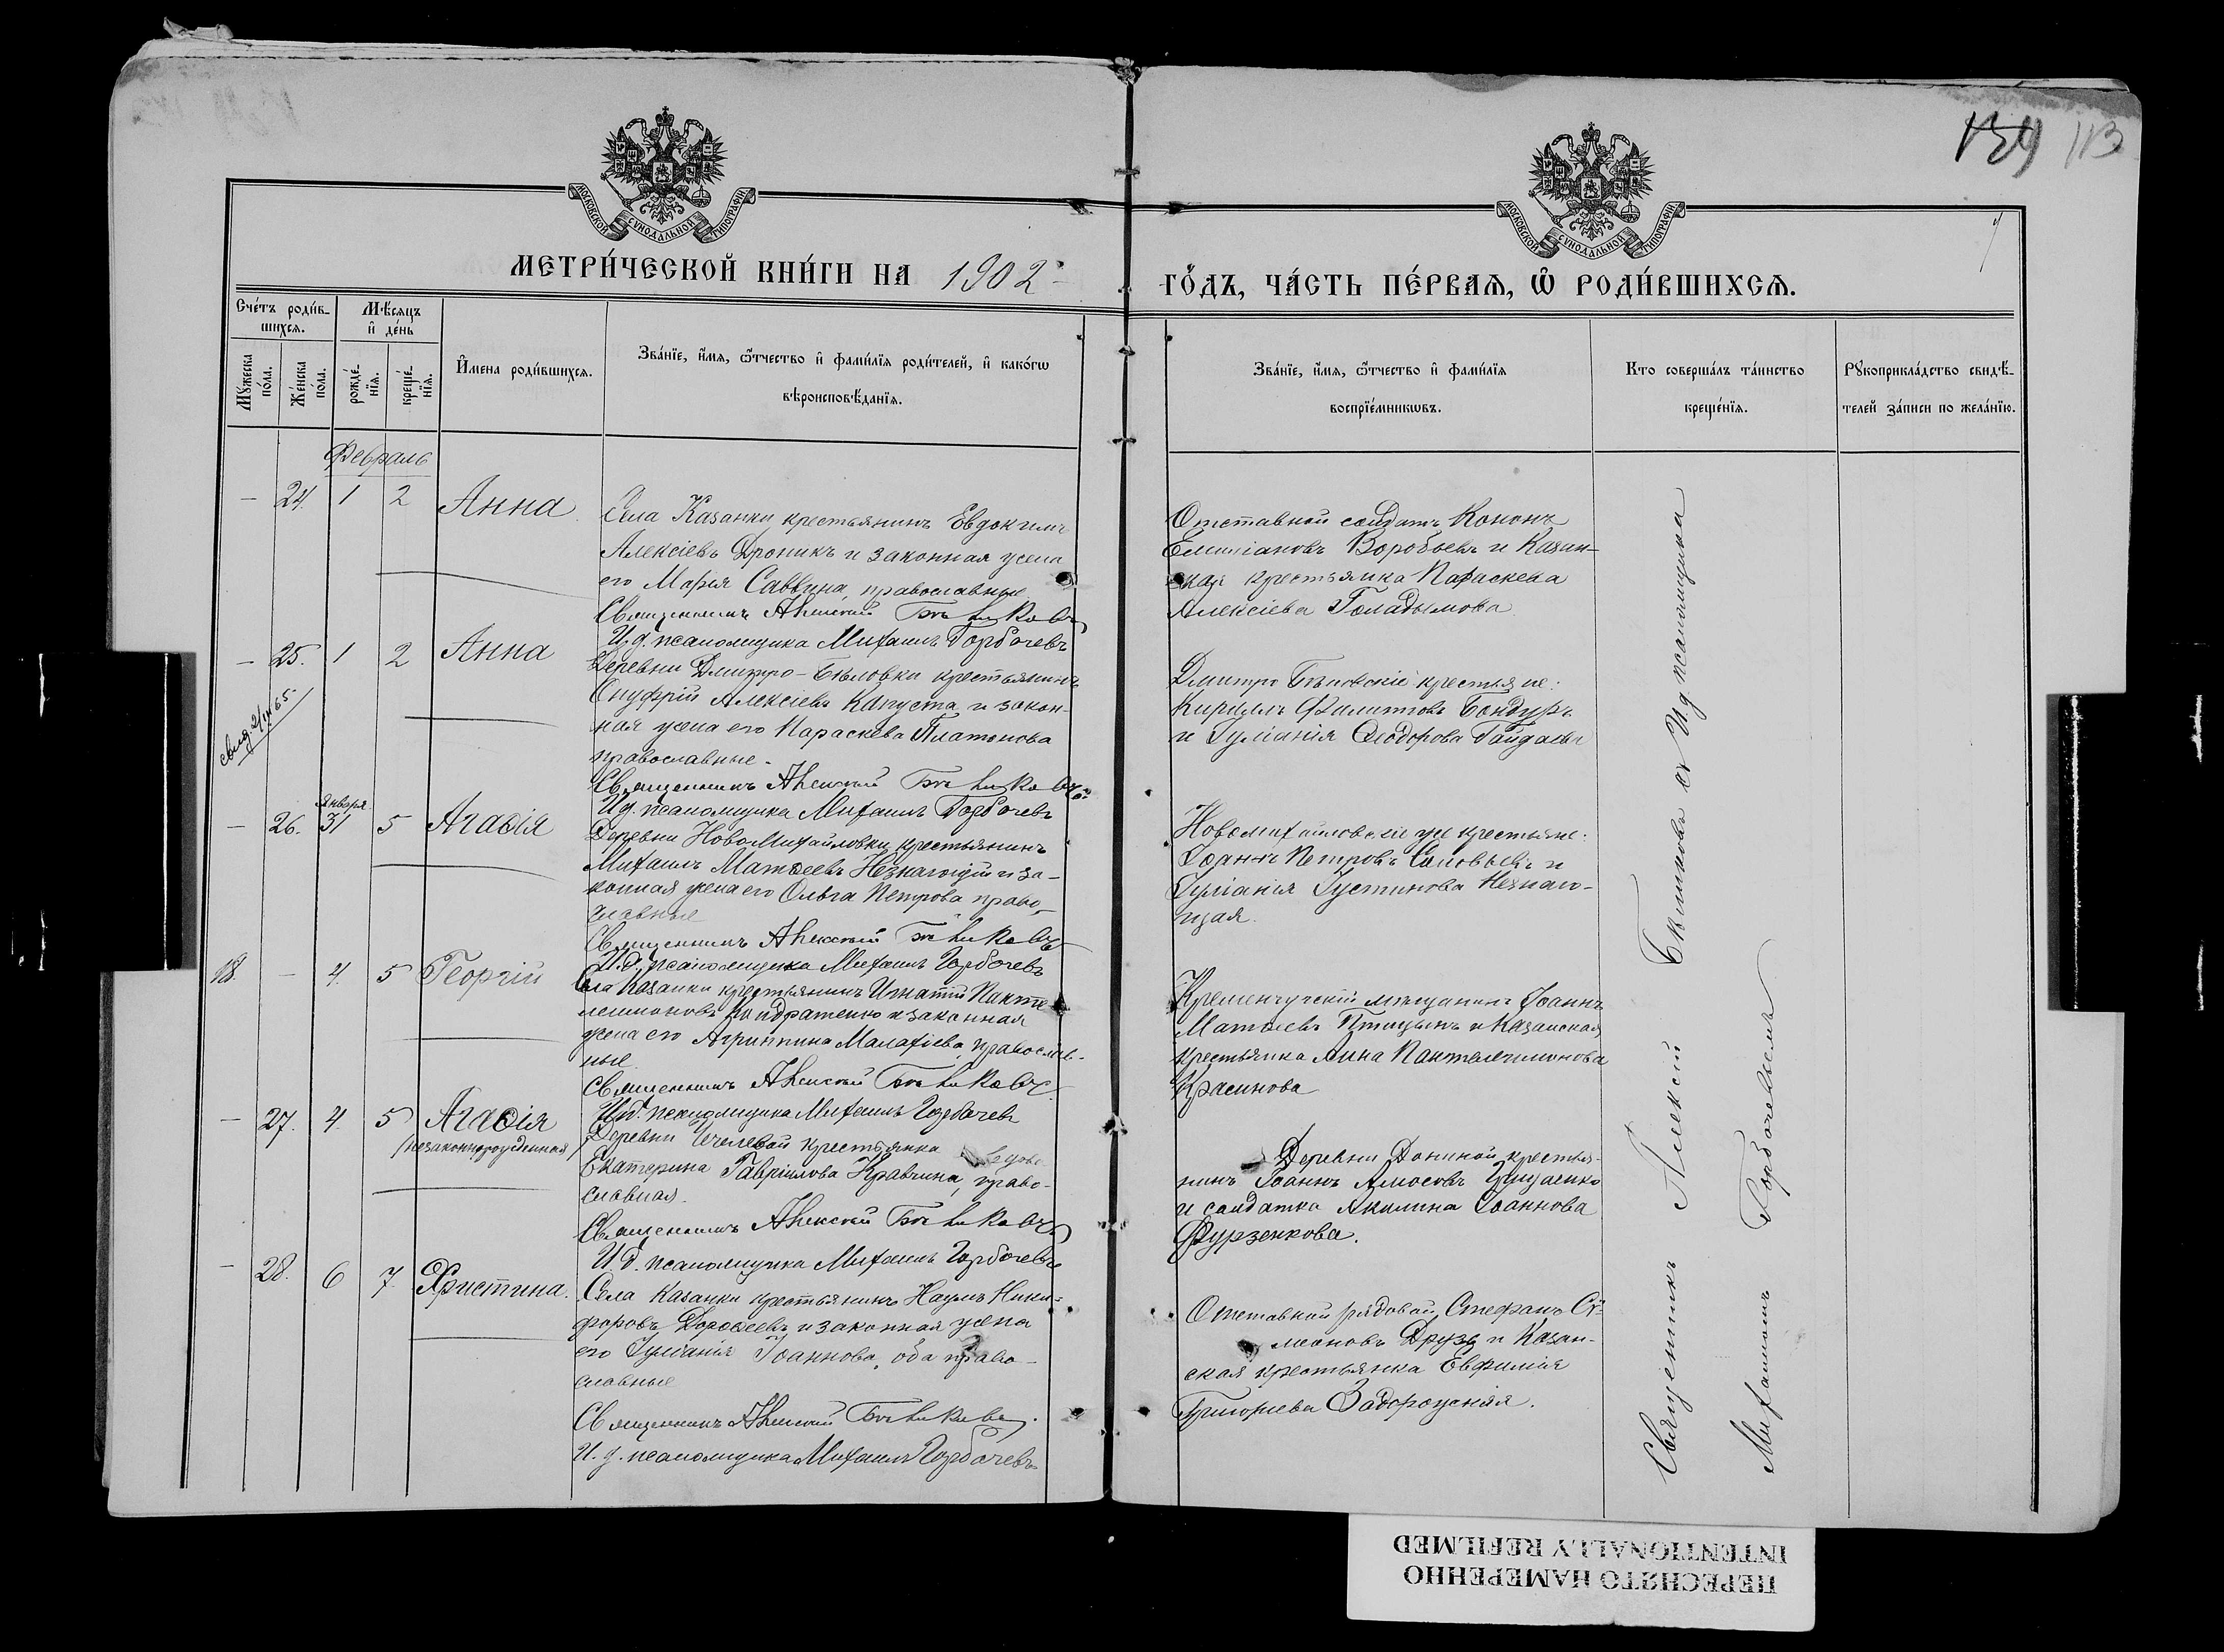 139 113
МОСКОВСКОЙ СѴНОДАЛЬНОЙ ТИПОГРАФІИ
МОСКОВСКОЙ СѴНОДАЛЬНОЙ ТИПОГРАФІИ
МЕТРИ́ЧЕСКОЙ КНИ́ГИ НА 1902
ГО́ДЪ, ЧА́СТЬ ПЕ́РВАѦ, Ѽ РОДИ́ВШИХСѦ.
Сче́тъ роди́в-
шихсѧ.
Мꙋ́жеска
по́ла.
Же́нска
по́ла.
Мѣ́сѧцъ
и҆ де́нь
рожде́-
нїѧ.
креще́-
нїѧ.
И҆мена роди́вшихсѧ.
Зва́нїе, и҆́мѧ, ѻ҆́тчество и҆ фами́лїѧ роди́телей, и҆ како́гѡ
вѣроисповѣ́данїѧ.
Зва́нїе, и҆́мѧ, ѻ҆́тчество и҆ фами́лїѧ
воспрїе́мникѡвъ.
Кто соверша́лъ та́инство
креще́нїѧ.
Рꙋкоприкла́дство свидѣ́-
телей за́писи по жела́нїю.
Февраль
— 24. 1 2 Анна
Села Казанки крестьянинъ Евдокимъ
Алексіевъ Дроникъ и законная жена
его Марія Саввина, православные
Священникъ Алексій Бѣликовъ
И.д. псаломщика Михаилъ Горбачевъ
Отставной солдатъ Кононъ
Емиліановъ Воробьевъ и Казан-
ская крестьянка Параскева
Алексіева Голадымова
— 25. 1 2 Анна
Деревни Дмитро-Бѣловки крестьянинъ
Онуфрій Алексіевъ Капуста и закон-
ная жена его Параскева Платонова
православные.
Священникъ Алексій Бѣликовъ
И.д. псаломщика Михаилъ Горбачевъ
Дмитро Бѣловскіе крестьяне:
Кириллъ Филипповъ Бондуръ
и Іуліанія Ѳеодорова Гайдаева
— 26. Января 31 5 Агаѳія
Деревни НовоМихайловки крестьянинъ
Михаилъ Матѳеевъ Незнающій и за-
конная жена его Ольга Петрова право-
славные
Священникъ Алексій Бѣликовъ
И.д. псаломщика Михаилъ Горбачевъ
Новомихайловскіе же крестьяне:
Іоаннъ Петровъ Соловьевъ и
Іуліанія Іустинова Незнаю-
щая.
18. — 4. 5 Георгій
Села Казанки крестьянинъ Игнатій Панте-
леимоновъ Кондратенко и законная
жена его Агриппина Малахіева, православ-
ные.
Священникъ Алексій Бѣликовъ
И.д. псаломщика Михаилъ Горбачевъ
Кременчугскій мѣщанинъ Іоаннъ
Матѳіевъ Птицынъ и Казанская
крестьянка Анна Пантелеимонова
Красинова
— 27. 4. 5 Агаѳія
(незаконнорожденная)
Деревни крестьянка
Екатерина Гавріилова Кравчина, право-
славная.
Священникъ Алексій Бѣликовъ
И.д. псаломщика Михаилъ Горбачевъ
Деревни Дониной крестья-
нинъ Іоаннъ Амосовъ Грищенко
и солдатка Акилина Іоаннова
Фурзенкова.
— 28. 6 7. Христина.
Села Казанки крестьянинъ Наумъ Ники-
форовъ Дороѳеевъ и законная жена
его Іуліанія Іоаннова, оба право-
славные
Священникъ Алексій Бѣликовъ.
И.д. псаломщика Михаилъ Горбачевъ
Отставной рядовой Стефанъ Сѵ-
меоновъ Друзь и Казан-
ская крестьянка Евфимія
Григориева Задорожняя.
Священникъ Алексій Бѣликовъ съ И д псаломщика
Михаиломъ Горбачевымъ
ПЕРЕСНЯТО НАМЕРЕННО
INTENTIONALLY REFILMED